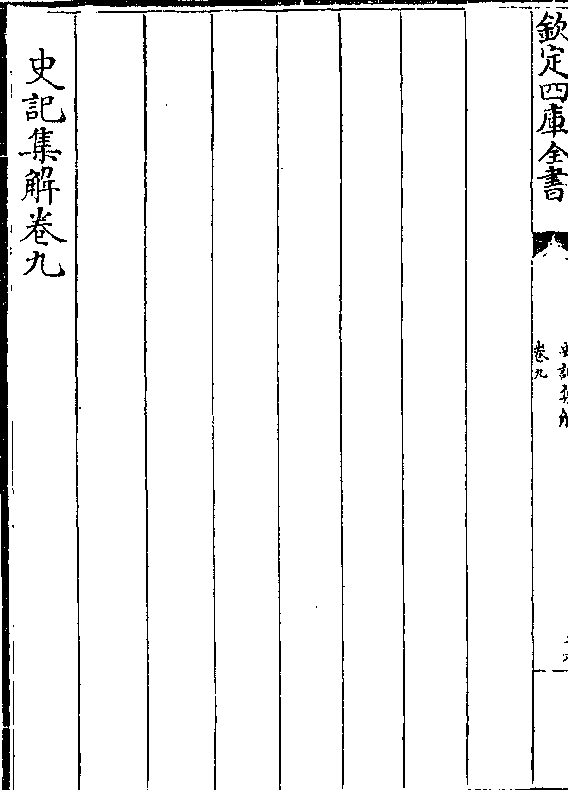 欽定四庫全書
史記集解
卷九
史記集解卷九